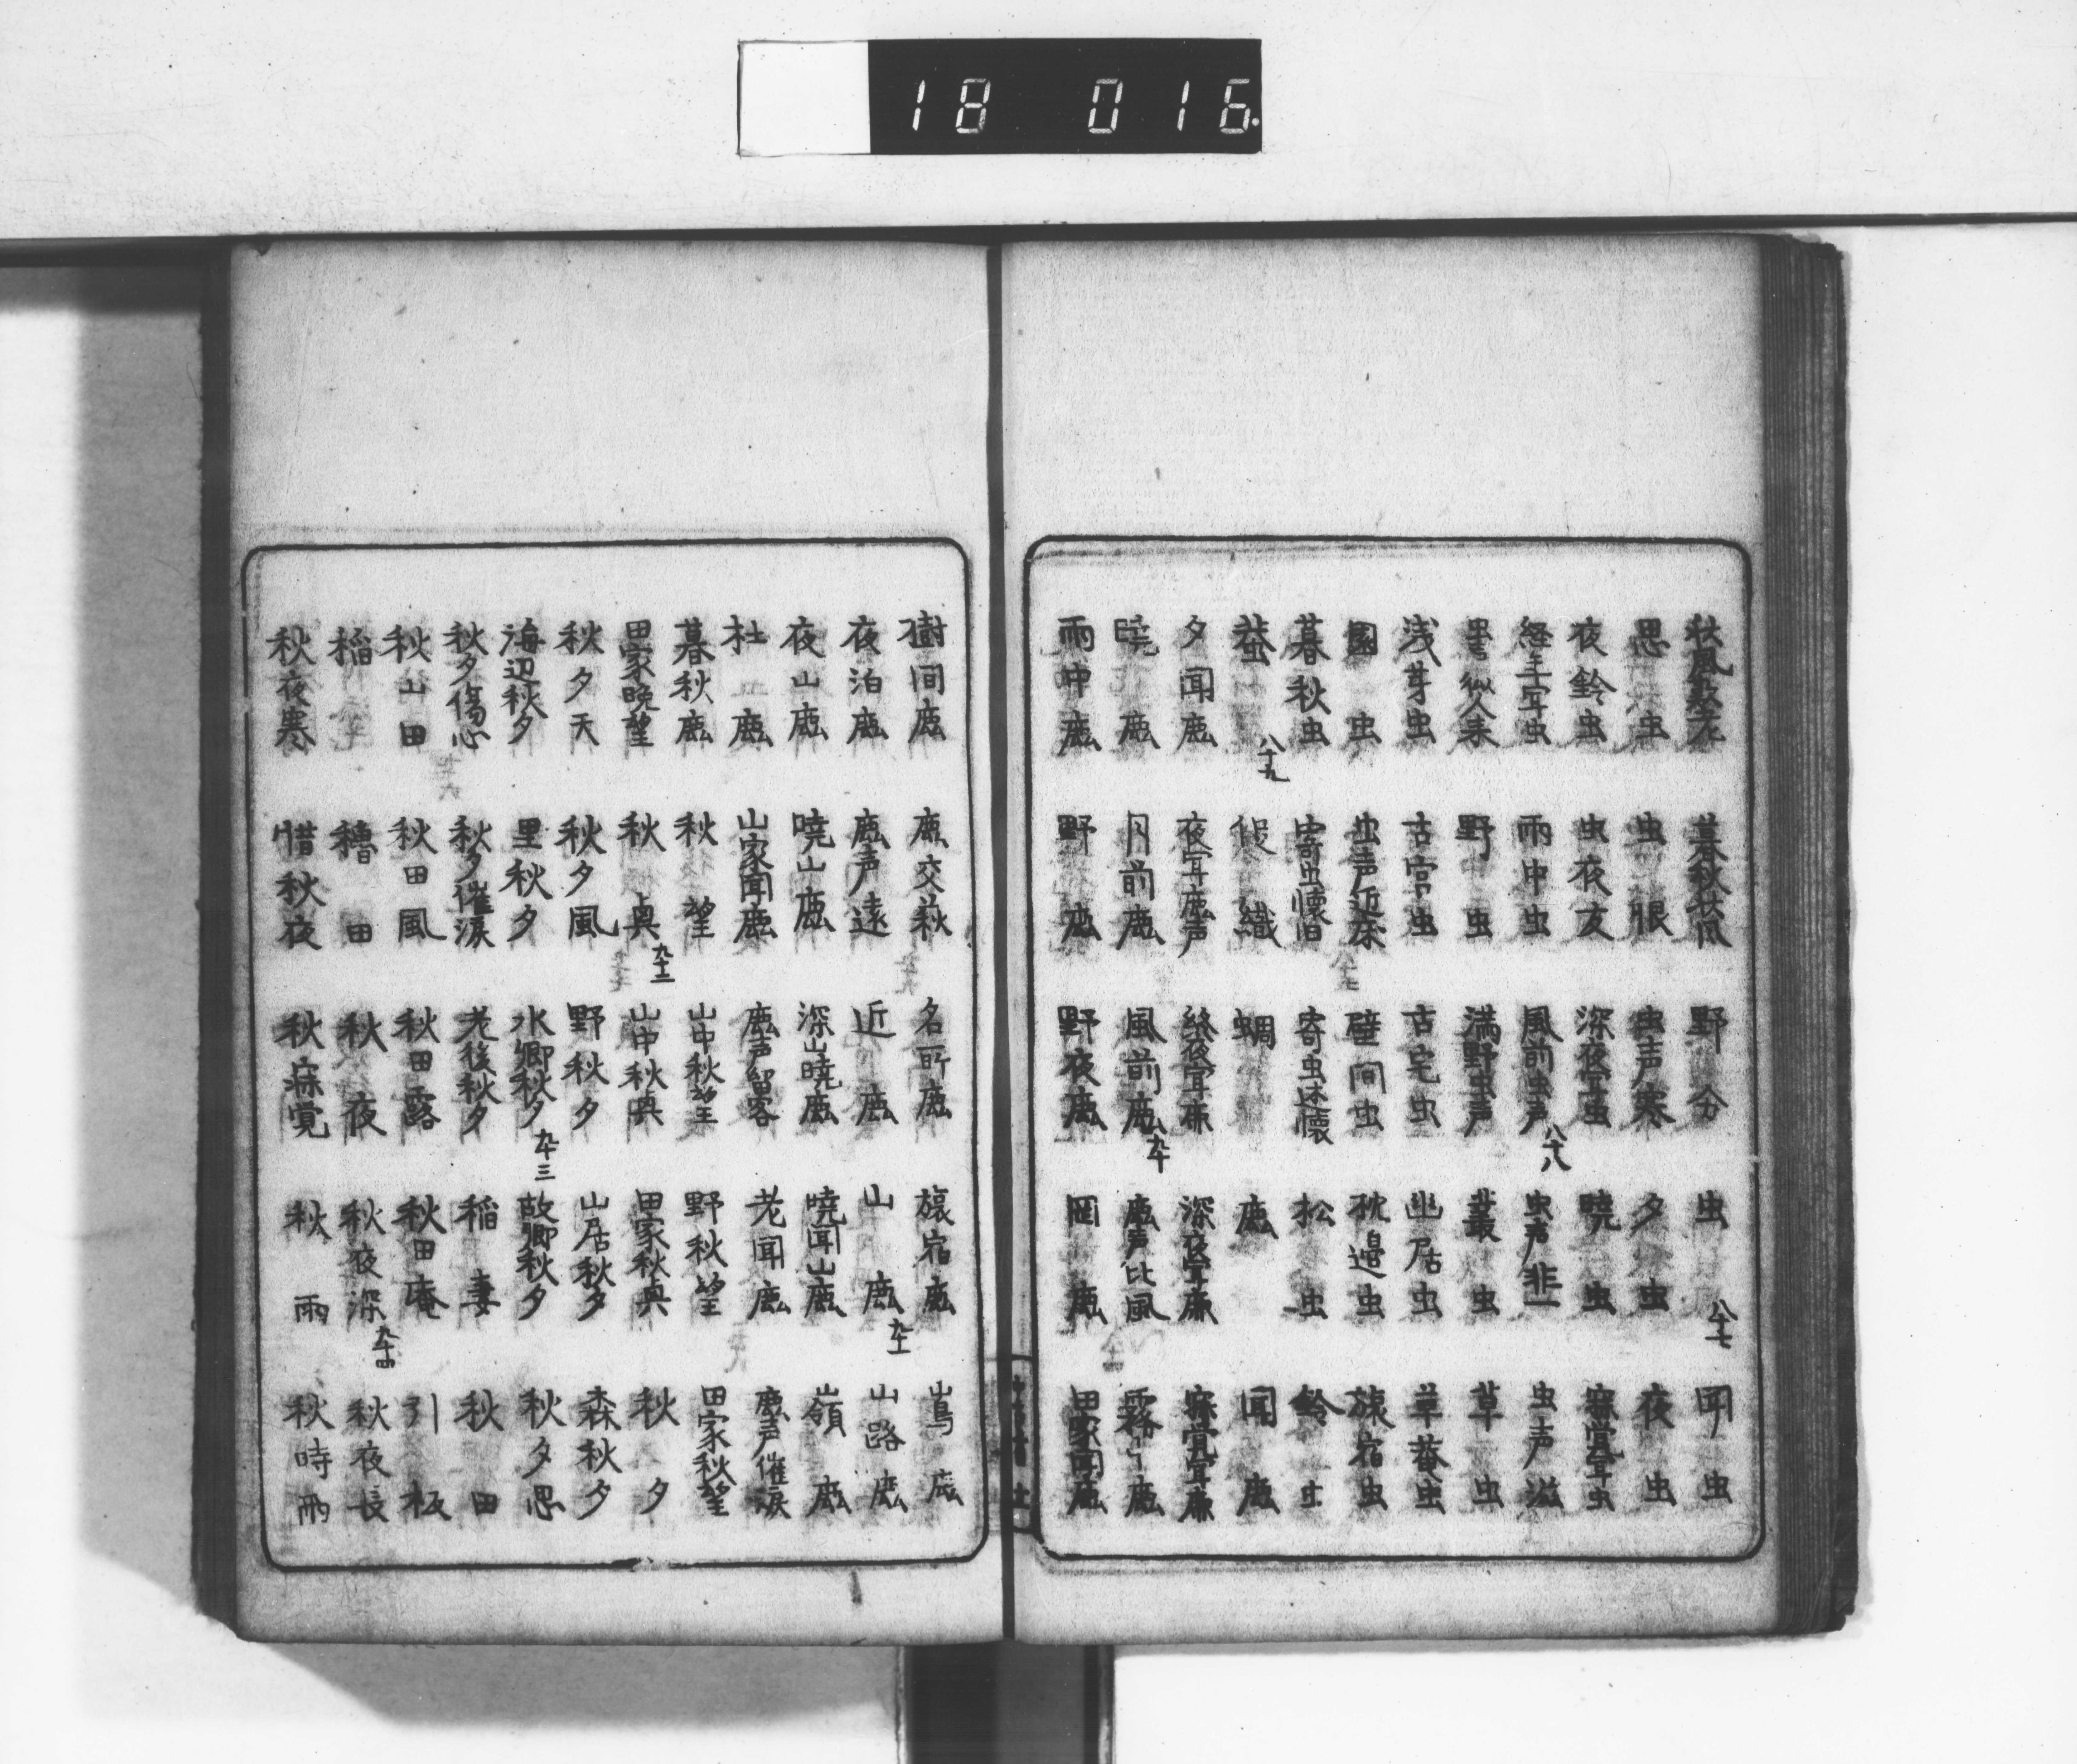 18 016
暮秋秋風 野分 虫 八十七 聞虫
思虫 虫恨 虫声寒 夕虫 夜虫
夜鈴虫 虫夜友 深夜虫 暁虫 寐覚虫
経年虫 雨中虫 風前虫声 八十八 虫声非一 虫声滋
似人来 野虫 満野虫声 叢虫 草虫
浅茅虫 古宮虫 古宅虫 幽居虫 草菴虫
園虫 虫声近床 壁間虫 枕邉虫 旅宿虫
暮秋虫 寄虫懐旧 寄虫述懐 松虫 鈴虫
蛬 八十九 促織 蜩 鹿 聞鹿
夕聞鹿 夜鹿声 終夜鹿 深夜鹿 寐覚鹿
暁鹿 月前鹿 風前鹿 九十 鹿声比風 霧中鹿
雨中鹿 野鹿 野夜鹿 岡鹿 田家聞鹿
樹間鹿 鹿交萩 名所鹿 旅宿鹿 嶌鹿
夜泊鹿 鹿声遠 近鹿 山鹿 九十一 山路鹿
夜山鹿 暁山鹿 深山暁鹿 暁聞山鹿 嶺鹿
杜鹿 山家聞鹿 鹿声留客 老聞鹿 鹿声催涙
暮秋鹿 秋望 山中秋望 野秋望 田家秋望
田家晩望 秋興 九十二 山中秋興 田家秋興 秋夕
秋夕天 秋夕風 野秋夕 山居秋夕 森秋夕
海辺秋夕 里秋夕 水郷秋夕 九十三 故郷秋夕 秋夕思
秋夕傷心 秋夕催涙 老後秋夕 稲妻 秋田
秋山田 秋田風 秋田露 秋田庵 引板
稲 穭田 秋夜 秋夜深 九十四 秋夜長
秋夜寒 惜秋夜 秋寐覚 秋雨 秋時雨